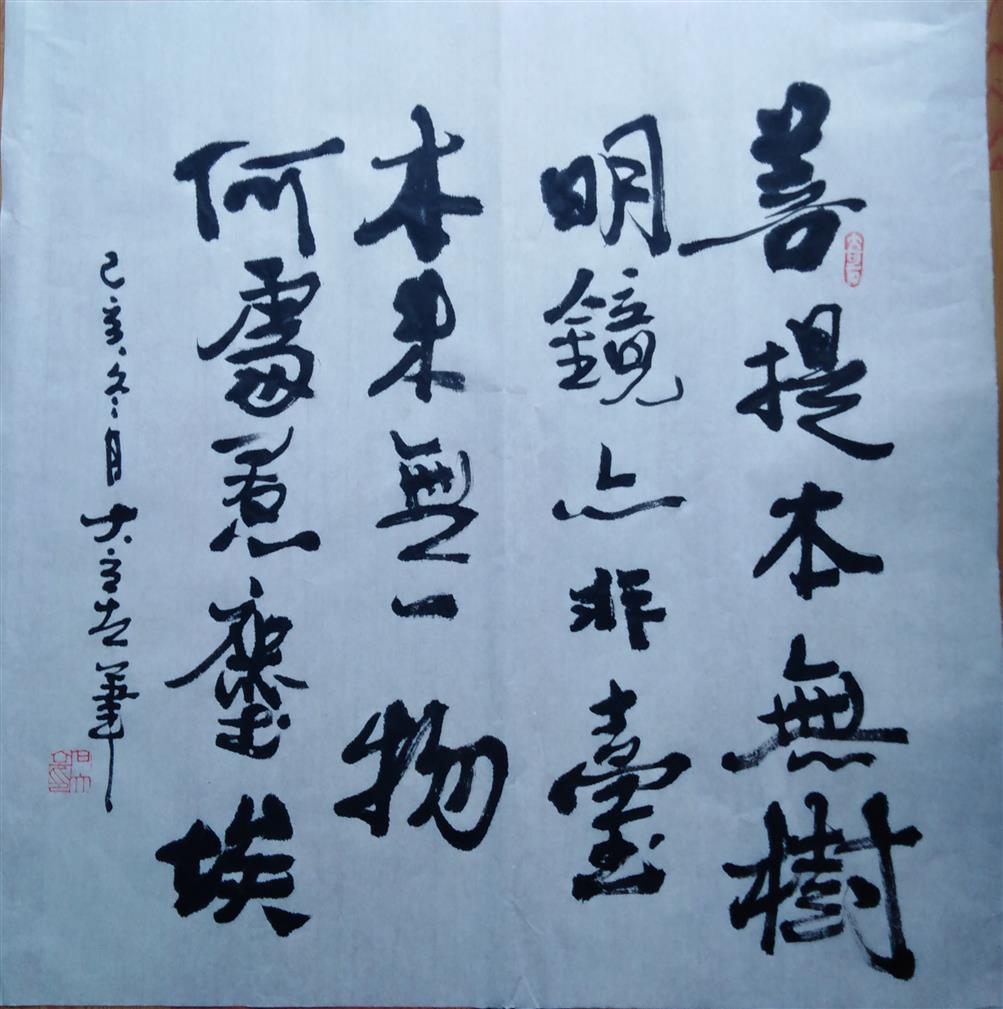 菩提本無樹
明鏡亦非臺
本来無一物
何處惹塵埃
己亥冬月大筆